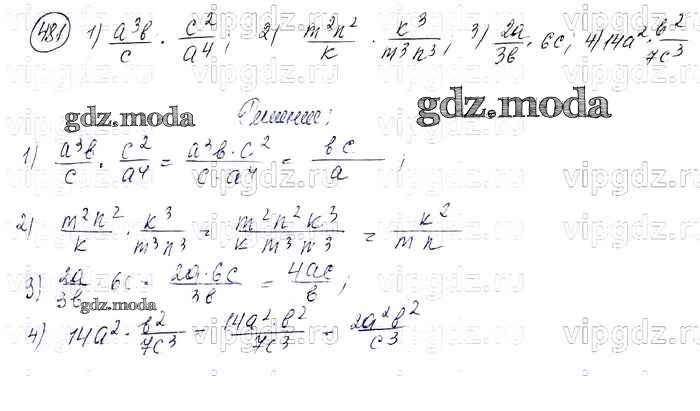 481 1) a³b/c · c²/a⁴; 2) m²n²/k · k³/m³n³; 3) 2a/3b · 6c; 4) 14a² · b²/7c³
gdz.moda gdz.moda
Решение:
1) a³b/c · c²/a⁴ = a³b·c²/c·a⁴ = bc/a ;
2) m²n²/k · k³/m³n³ = m²n²k³/k m³n³ = k²/mn
3) 2a/3b · 6c = 2a·6c/3b = 4ac/b ;
gdz.moda
4) 14a² · b²/7c³ = 14a²b²/7c³ = 2a²b²/c³
vipgdz.ru